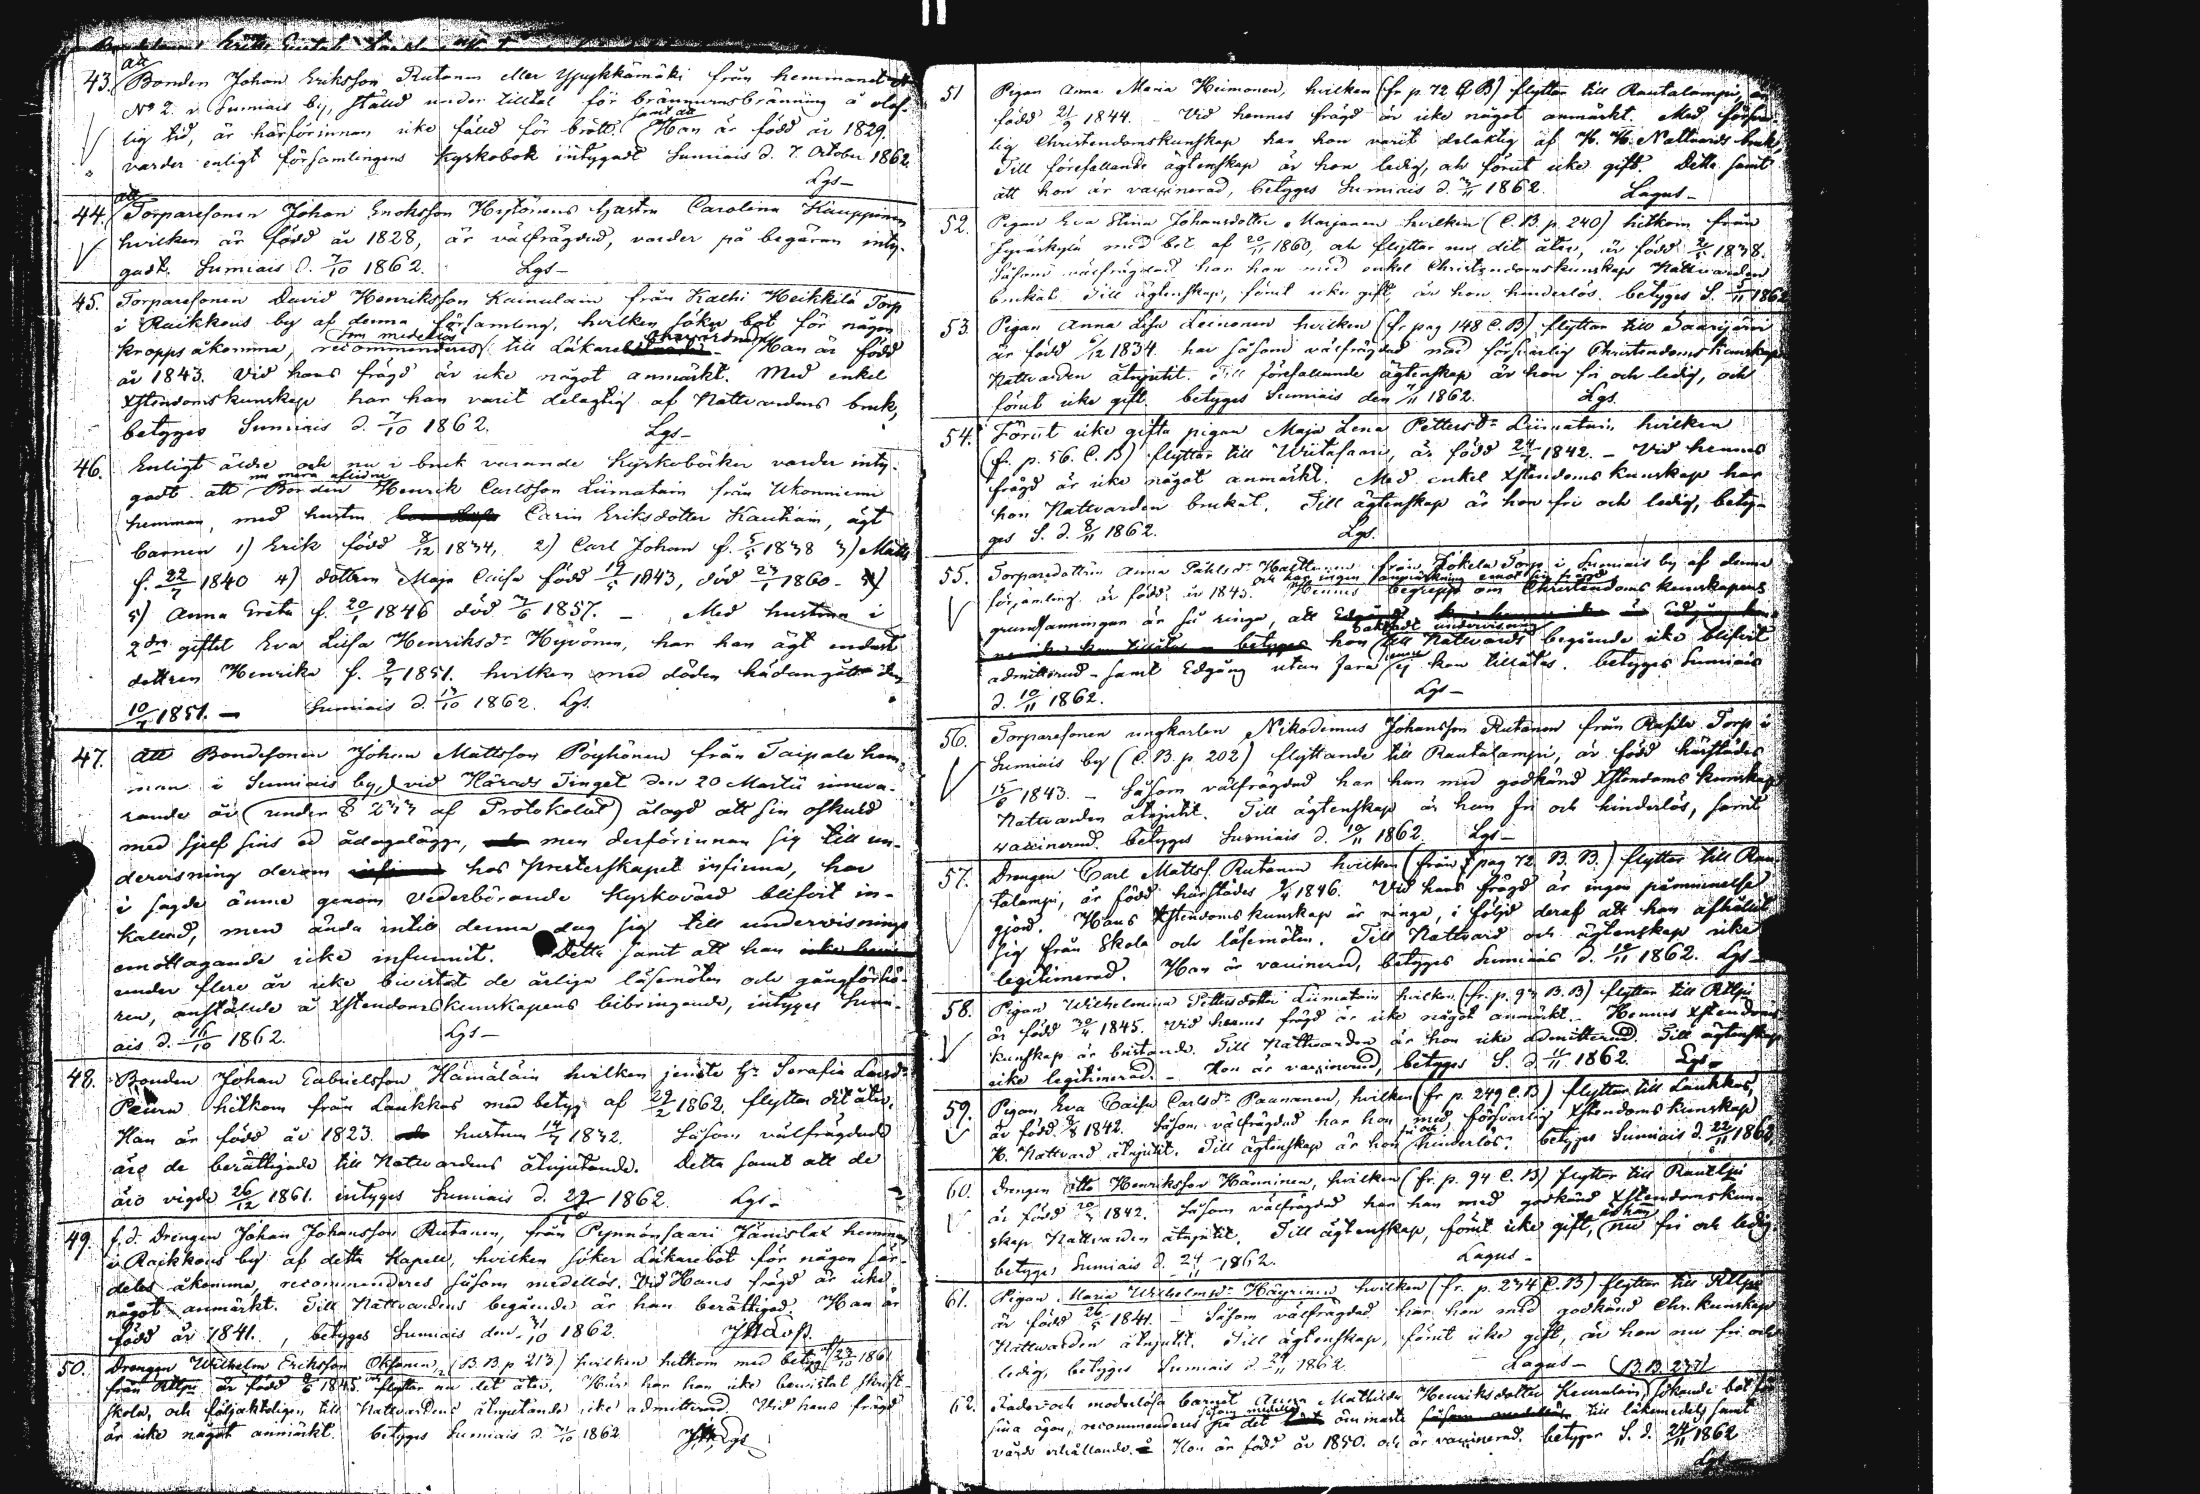 43. att Bonden Johan Eriksson Rutanen eller Ypykkämäki från hemmanet
No 2 i Sumiais by, ställd under tilltal för brännvinsbränning å olaf-
lig tid, är härförinnan icke fälld för brott. samt att Han är född år 1829.
varder enligt församlingens Kyrkobok intygadt Sumiais d. 7 October 1862.
Lgs-
44. att Torparesonen Johan Enoksson Hytönens hustru Carolina Kauppinen
hvilken är född år 1828, är välfrägdad, varder på begäran inty-
gadt. Sumiais d. 7/10 1862. Lgs-
45. Torparesonen David Henriksson Kainulain från Kalhi Heikkilä Torp
i Raikkous by af denna församling, hvilken söker bot för någon
kropps åkomma, som medellös recommenderas till Läkare Han är född
år 1843. Vid hans frägd är icke något anmärkt. Med enkel
Xstendomskunskap har han varit delagtig af Nattvardens bruk,
betyges Sumiais d. 7/10 1862. Lgs-
46. Enligt äldre och nu i bruk varande Kyrkoböcker varder inty-
gadt att nu mera aflidne Bonden Henrik Carlsson Liimatain från Ukonniemi
hemman, med hustru Carin Eriksdotter Kautiain, ägt
barnen 1) Erik född 8/12 1834, 2) Carl Johan f. 5/5 1838 3) Matts
f. 22/7 1840 4) dottren Maja Caisa född 19/5 1843, död 23/1 1860-
5) Anna Greta f. 20/1 1846 död 3/6 1857. - Med hustrun i
2dra giftet Eva Lisa Henriksdr Hyvönen, har han ägt endast
dottren Henrika f. 9/7 1851. hvilken med döden hädangått den
10/7 1851. - Sumiais d. 13/10 1862. Lgs.
47. Att Bondesonen Johan Mattsson Pöyhönen från Taipale hem-
man i Sumiais by, vid Härads Tinget den 20 Martii inneva-
rande år (under § 233 af Protokolet) ålagd att sin oskuld
med sjelf sins ed ådagalägga, men derförinnan sig till un-
dervisning derom hos presterskapet infinna, har
i sagde ämne genom vederbörande Kyrkovärd blifvit in-
kallad, men ända intill denna dag sig till undervisnings
emottagande icke infunnit. Detta samt att han
under flere år icke bivistat de årliga läsemöten och gångförhö-
ren, anställde å Xstendomskunskapens bibringande, intyges Sumi-
ais d. 16/10 1862. Lgs-
48. Bonden Johan Gabrielsson Hämäläin hvilken jemte Hr Serafia
Peura hitkom från Laukkas med betyg af 29/2 1862. flyttar dit åter.
Han är född år 1823. hustrun 14/7 1832. Såsom välfrägdade
äro de berättigade till Nattvardens åtnjutande. Detta samt att de
äro vigde 26/12 1861. intyges Sumiais d. 29/10 1862. Lgs-
49. f.d. Drengen Johan Johansson Rutanen, från Pynnönsaari Jänislax hemman
i Raikkous by af detta Kapell, hvilken söker Läkarebot för någon sär-
deles åkomma, recommenderes såsom medellös. Vid Hans frägd är icke
något anmärkt. Till Nattvardens begående är han berättigad. Han är
född år 1841., betyges Sumiais den 31/10 1862.
50. Drengen Wilhelm Eriksson Oksanen, (B.B. p 213) hvilken hitkom med betyg af 23/10 1861
från Rllpi är född 1845. flyttar nu dit åter. Här har han icke bevistat skrift-
skola, och följaktligen till Nattvardens åtnjutande icke admitterad. Vid hans frägd
är icke något anmärkt. betyges Sumiais d. 31/10 1862
51 Pigan Anna Maria Heimonen, hvilken (fr p. 72 C B) flyttar till Rautalampi, är
född 21/9 1844. - Vid hennes frägd är icke något anmärkt. Med försvar-
lig Christendomskunskap har hon varit delaktig af H. H. Nattvards bruk,
Till förefallande ägtenskap är hon ledig, och förut icke gift. Detta samt
att hon är vaccinerad, betyges Sumiais d. 3/11 1862. Lagus-
52. Pigan Eva Stina Johansdotter Marjanen hvilken (C.B. p. 240) hitkom från
Jyväskylä med bet. af 20/11 1860, och flyttar nu dit åter, är född 2/5 1838.
Såsom välfrägdad har hon med enkel Christendomskunskap Nattvarden
brukat. Till ägtenskap, förut icke gift, är hon hinderlös. betyges S. 5/11 1862
53. Pigan Anna Lisa Leinonen hvilken (fr pag 148 C.B) flyttar till Saarijärvi
är född 6/12 1834. har såsom välfrägdad med försvarlig Christendoms Kunskap
Nattvarden åtnjutit. Till förefallande ägtenskap är hon fri och ledig, och
förut icke gift. betyges Sumiais den 7/11 1862. Lgs.
54. Förut icke gifta pigan Maja Lena Pettersdr Liimatain hvilken
(fr. p. 56. C.B) flyttar till Wiitasaari, är född 24/7 1842. - Vid hennes
frägd är icke något anmärkt. Med enkel Xstendoms kunskap har
hon Nattvarden brukat. Till ägtenskap är hon fri och ledig, bety-
ges S. d. 8/11 1862. Lgs.
55. Torparedottren Anna Påhlsdr från Jokela Torp i Sumiais by af denna
församling är född år 1843. och har ingen anmärkning emot sin frägd Hennes begrepp om Christendoms kunskapens
grundsanningar är så ringa, att
hon till Nattvards begående icke blifvit
admitterad - samt Edgång utan fara ej kan tillåtas. betyges Sumiais
d. 10/11 1862. Lgs-
56. Torparesonen ungkarlen Nikodemus Johansson Rutanen från Rasila Torp i
Sumiais by (C.B. p. 202) flyttande till Rautalampi, är född härstädes
15/6 1843. - Såsom välfrägdad har han med godkänd Xstendoms kunskap
Nattvarden åtnjutit. Till ägtenskap är han fri och hinderlös, samt
vaccinerad. betyges Sumiais d. 10/11 1862. Lgs-
57. Drengen Carl Mattss. Rutanen hvilken (från pag 72 B.B.) flyttar till Rau-
talampi, är född härstädes 9/4 1846. Vid hans frägd är ingen påminnelse
gjord. Hans Xstendomskunskap är ringa, i följd deraf att han afhållit
sig från Skola och läsemöten. Till Nattvard och ägtenskap icke
legitimerad. Han är vaccinerad, betyges Sumiais d. 10/11 1862. Lgs-
58. Pigan Wilhelmina Pettersdotter Liimatain hvilken (fr. p. 93 B.B) flyttar till Rllpi
är född 30/4 1845. Vid hennes frägd är icke något anmärkt. Hennes Xstendoms
kunskap är bristande. Till Nattvarden är hon icke admitterad. Till ägtenskap
icke legitimerad. - Hon är vaccinerad, betyges S. d 11/11 1862. Lgs-
59. Pigan Eva Caisa Carlsdr Paananen, hvilken (fr p. 249 C.B) flyttar till Laukkas,
är född 3/8 1842. Såsom välfrägdad har hon med försvarlig Xstendoms kunskap
H. Nattvard åtnjutit. Till ägtenskap är hon fri och hinderlös. betyges Sumiais d. 22/11 1862.
60. Drengen Otto Henriksson Hänninen, hvilken (fr. p. 94 C.B) flyttar till Rautlpi
är född 1842. Såsom välfrägdad har han med godkänd Xstendomskun-
skap Nattvarden åtnjutit. Till ägtenskap, förut icke gift, är han nu fri och ledig.
betyges Sumiais d. 24/11 1862. Lagus-
61. Pigan Maria Wilhelmsdr Häyrinen hvilken (fr. p. 234 C.B) flyttar till Rllpi
är född 26/5 1841. - Såsom välfrägdad har hon med godkänd Chr. kunskap
Nattvarden åtnjutit. Till ägtenskap, förut icke gift, är hon nu fri och
ledig, betyges Sumiais d. 24/11 1862. Lagus- (B.B. 237)
62. Fader- och moderlösa barnet Anna Mathilda Henriksdotter sökande bot för
sina ögon, recommenderes såsom medellös på det ömmaste till läkemedels samt
vårds erhållande. Hon är född år 1850. och är vaccinerad. betyges S. d. 24/11 1862
Lgs-